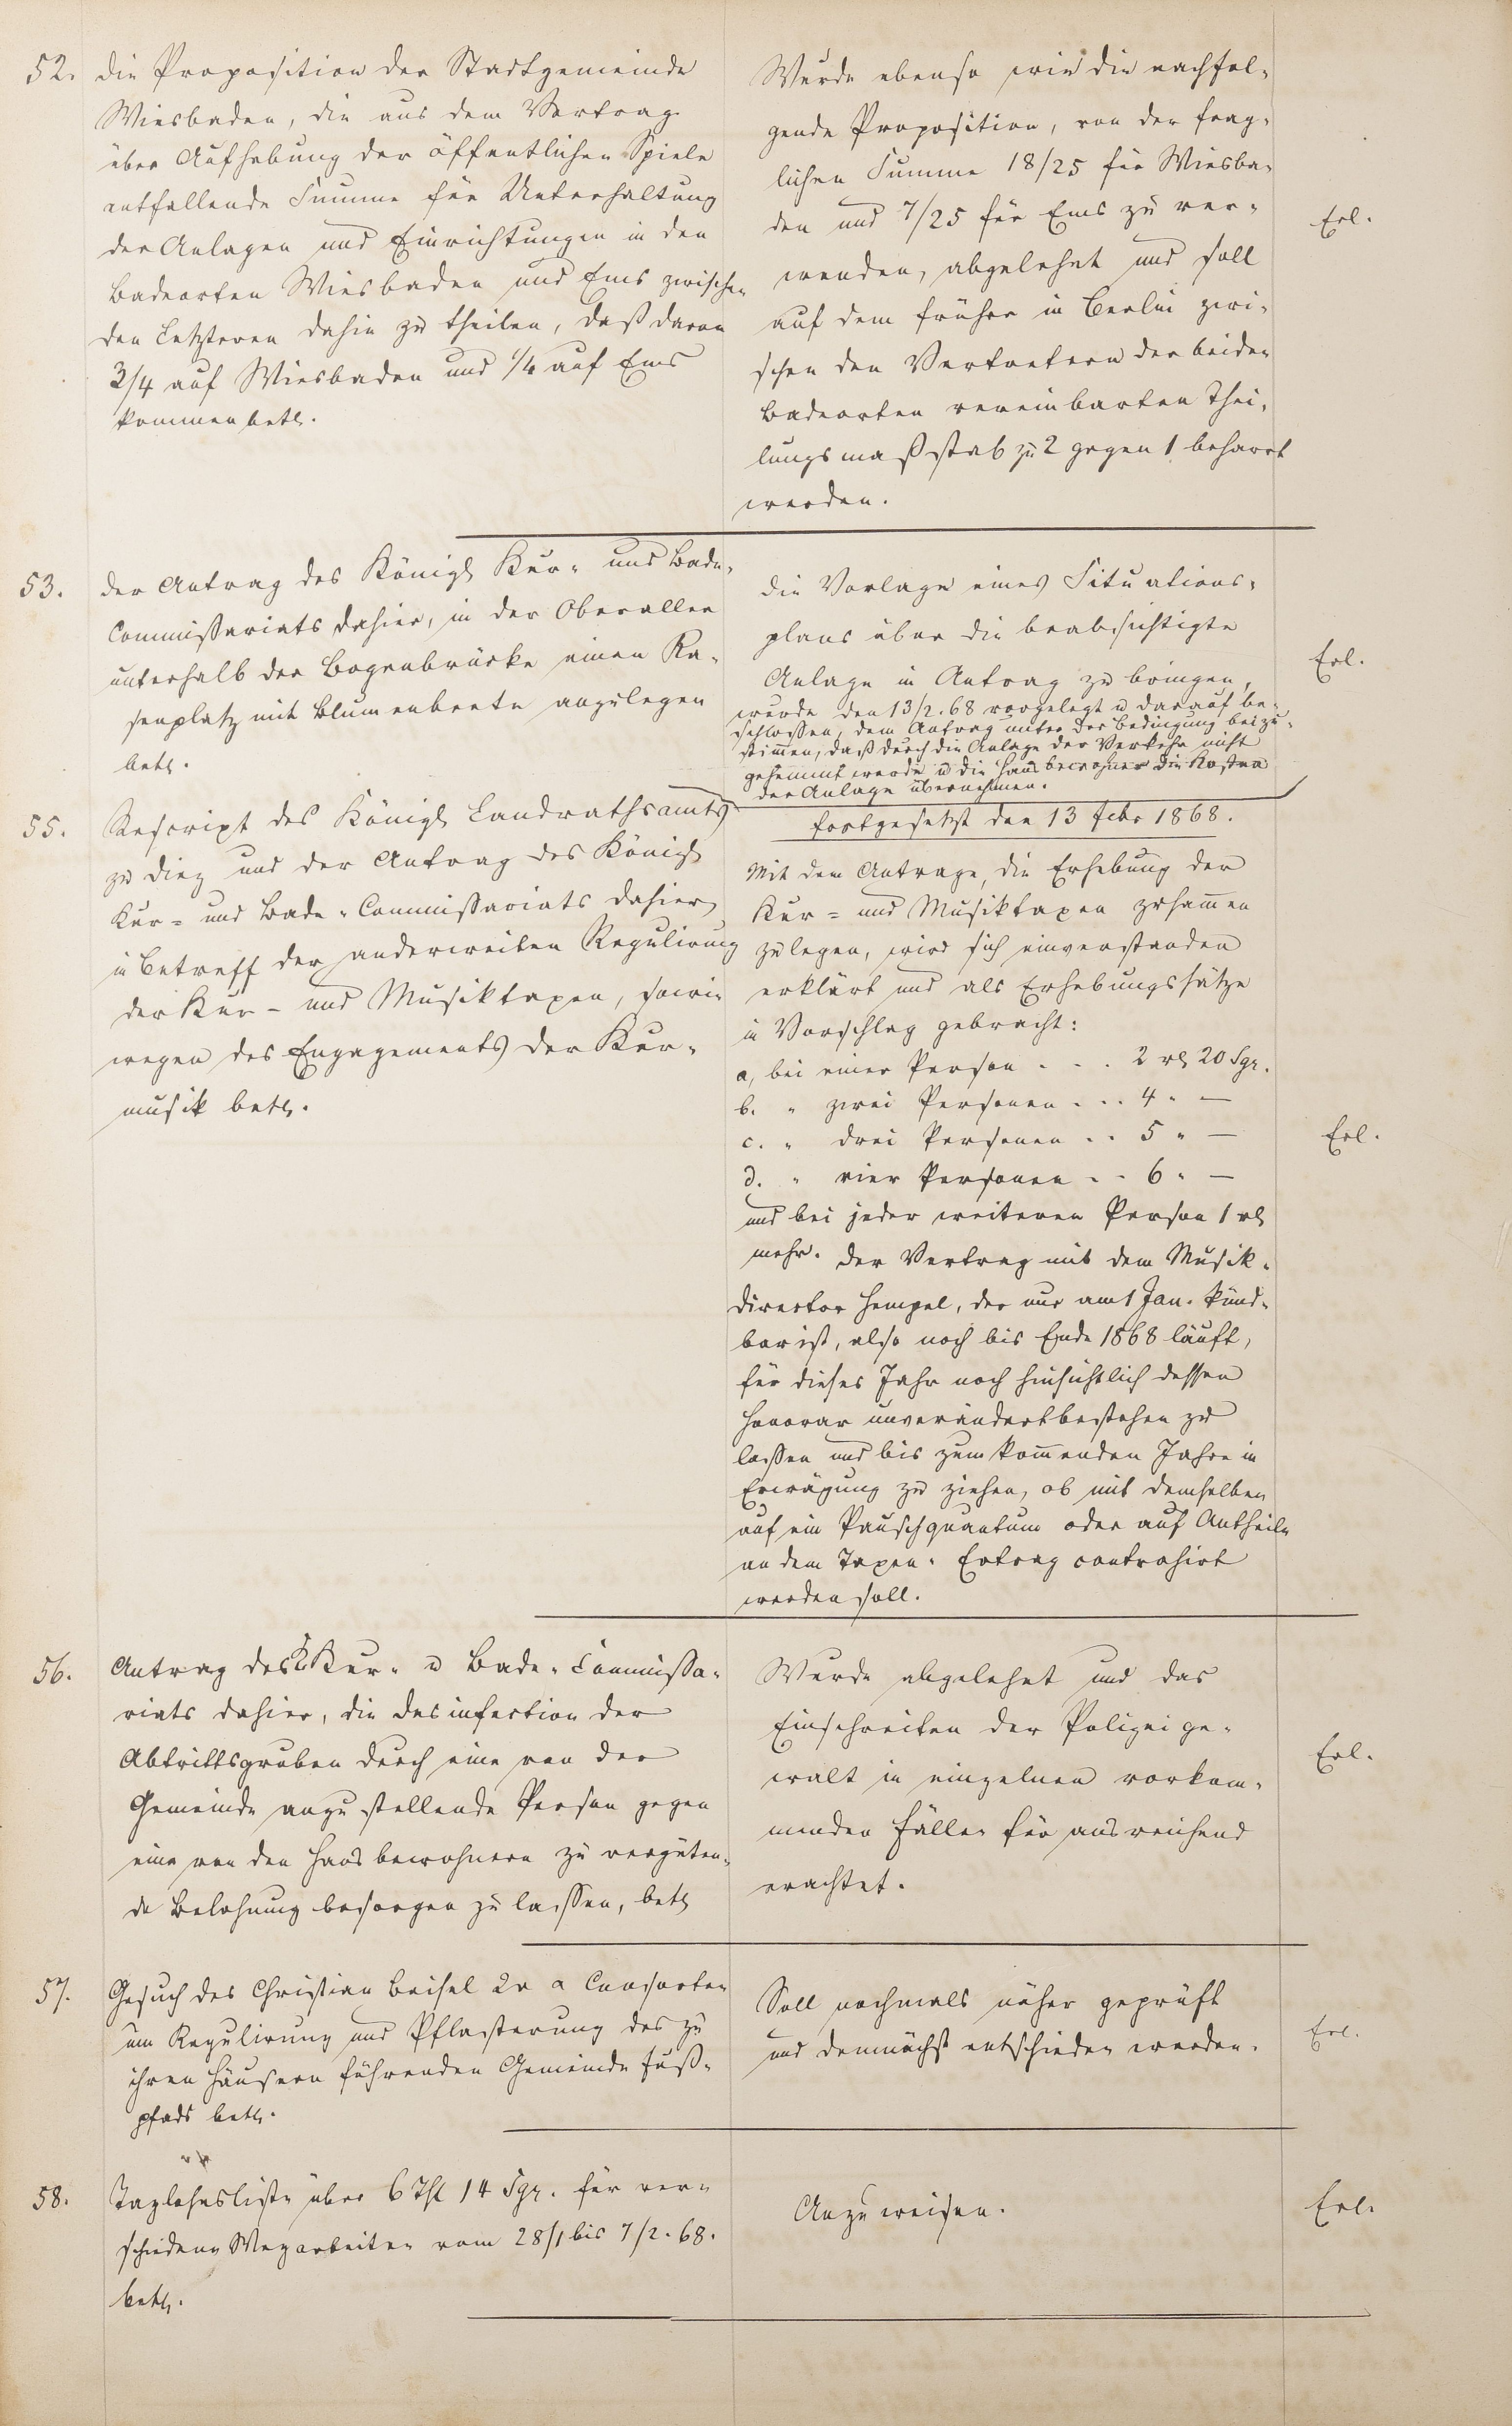 52. die Proposition der Stadtgemeinde
Wiesbaden, die aus dem Vertrag
über Aufhebung der öffentlichen Spiele
entfallende Summe für Unterhaltung
der Anlagen und Einrichtungen in den
Badeorten Wiesbaden und Ems zwischen
den Letzteren dahin zu theilen, daß davon
3/4 auf Wiesbaden und 1/4 auf Ems
kommen betr.
Wurde ebenso wie die nachfol-
gende Proposition, von der frag-
lichen Summe 18/25 für Wiesba-
den und 7/25 für Ems zu ver-
wenden, abgelehnt und soll
auf dem früher in Berlin zwi-
schen den Vertretern der beiden
Badeorten vereinbarten Thei-
lungsmaßstab zu 2 gegen 1 beharrt
werden.
Erl.
53. der Antrag des Königl Kur- und Bade-
Commissariats dahier, in der Oberallee
unterhalb der Bogenbrücke einen Ra-
senplatz mit Blumenbeete anzulegen
betr.
die Vorlage eines Situations-
plans über die beabsichtigte
Anlage in Antrag zu bringen,
wurde den 13/2.68 vorgelegt u darauf be-
schlossen, dem Antrag unter der Bedingung beizu-
stimmen, daß durch die Anlage der Verkehr nicht
gehemmt werde u die Hausbewohner die Kosten
der Anlage übernehmen.
Erl.
fortgesetzt den 13 Febr 1868.
55. Rescript des Königl Landrathsamts
zu Diez und der Antrag des Königl
Kur- und Bade-Commissariats dahier,
in Betreff der anderweiten Regulirung
der Kur- und Musiktaxen, sowie
wegen des Engagements der Kur-
musik betr.
Mit dem Antrage, die Erhebung der
Kur- und Musiktaxen zusammen
zulegen, wird sich einverstanden
erklärt und als Erhebungssätze
in Vorschlag gebracht:
a, bei einer Person . . . 2 rl 20 Sgr.
b. " zwei Personen . . . 4 " —
c. " drei Personen . . 5 " —
d. " vier Personen . . 6 " —
und bei jeder weiteren Person 1 rl
mehr. der Vertrag mit dem Musik-
director Hempel, der nur am 1 Jan. künd-
bar ist, also noch bis Ende 1868 läuft,
für dieses Jahr noch hinsichtlich dessen
Honorar unverändert bestehen zu
lassen und bis zum kommenden Jahre in
Erwägung zu ziehen, ob mit demselben
auf ein Pauschquantum oder auf Antheile
an dem Taxen-Ertrag contrahirt
werden soll.
Erl.
56. Antrag des K Kur- u Bade-Commissa-
riats dahier, die Desinfection der
Abtrittsgruben durch eine von der
Gemeinde anzustellende Person gegen
eine von den Hausbewohnern zu vergüten-
de Belohnung besorgen zu lassen, betr
Wurde abgelehnt und das
Einschreiten der Polizeige-
walt in einzelnen vorkom-
menden Fällen für ausreichend
erachtet.
Erl.
57. Gesuch des Christian Beisel 2r & Consorten
um Regulirung und Pflasterung des zu
ihren Häusern führenden Gemeinde Fuß-
pfads betr.
Soll nochmals näher geprüft
und demnächst entschieden werden.
Erl.
58. Taglohnsliste über 6 Thl 14 Sgr. für ver-
schiedene Wegarbeiten vom 28/1 bis 7/2.68.
betr.
Anzuweisen.
Erl.